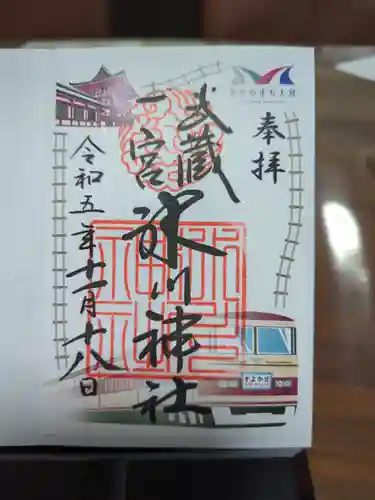 奉拝
武蔵
一宮
氷川神社
令和五年十一月十八日
そよかぜ